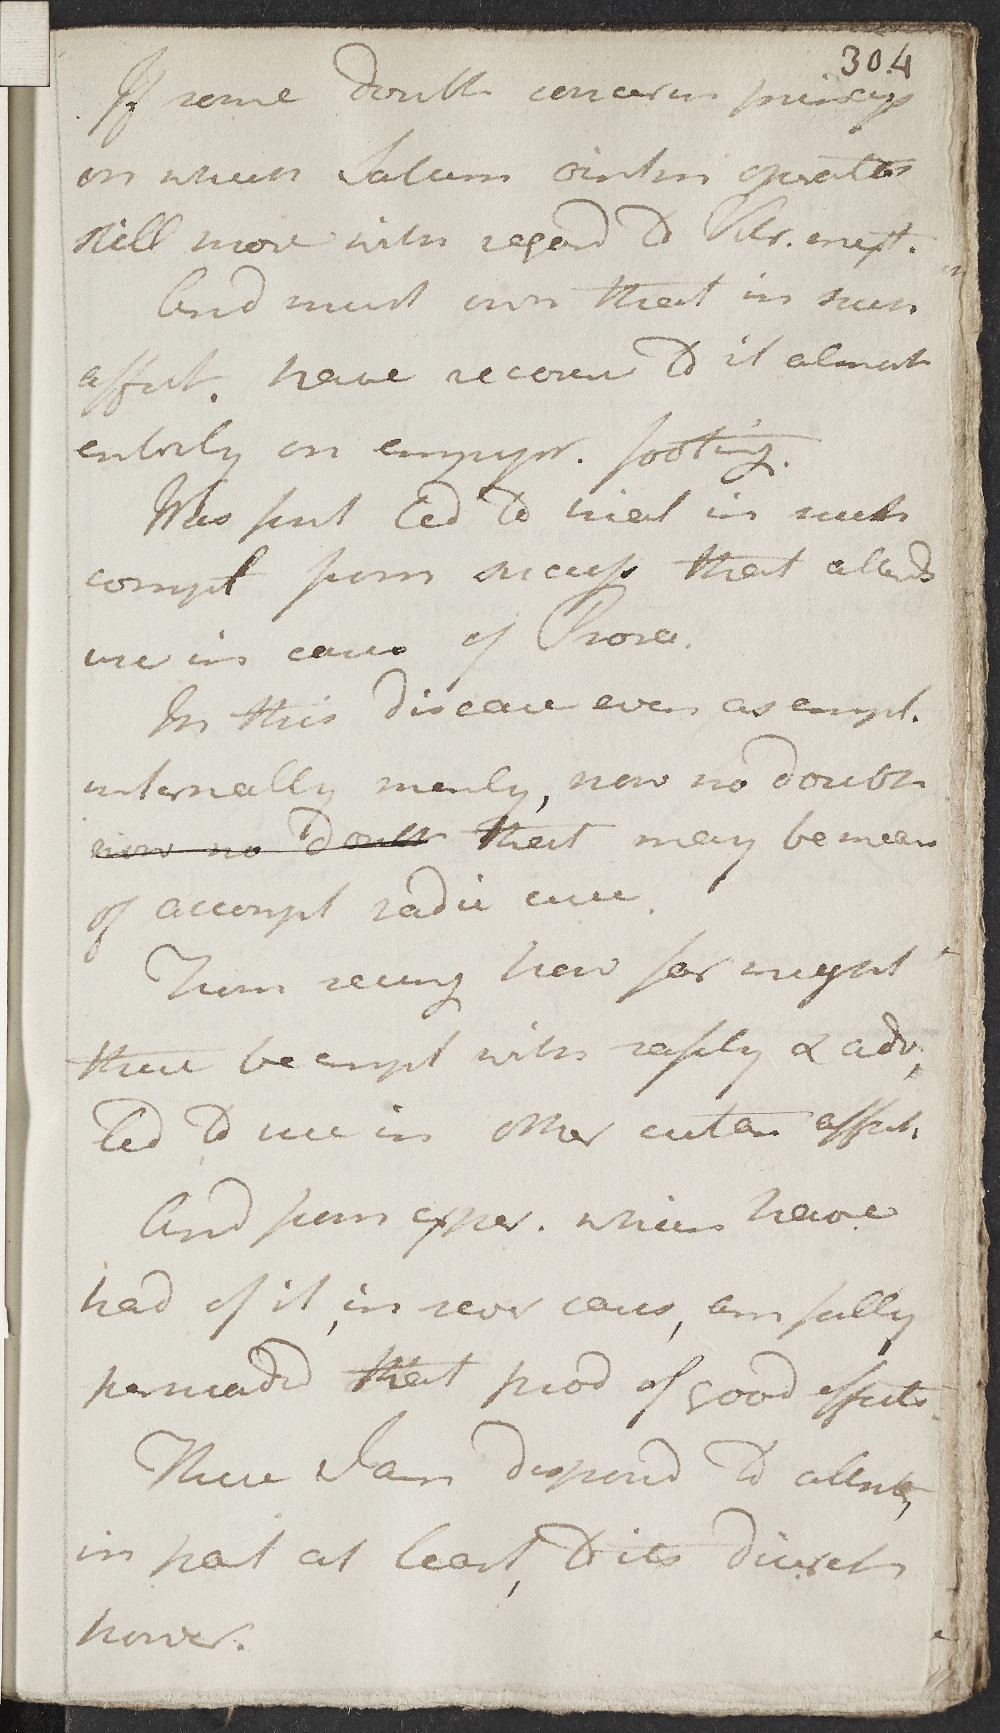 304
If some doubt concern princip
on which Saturn ointm operates
still more with regard to Vitr. 
And must own that in such
affect. have recours to it almost
entirly on empyr. footing.
Was first led to trial in such
compt from success that attends
use in cases of Psora.
In this disease even as empl.
internally merly, now no doubt
now no doubt that may be mean
of accompt radic cure.
From seeing how far might
there be empl with safety & adv,
led to use in other cutan affect.
And from exper. which have
had of it, in sever cases, am fully
persuaded that prod of good effects.
These I am disposed to attribute,
in part at least, to its diuretic
power.